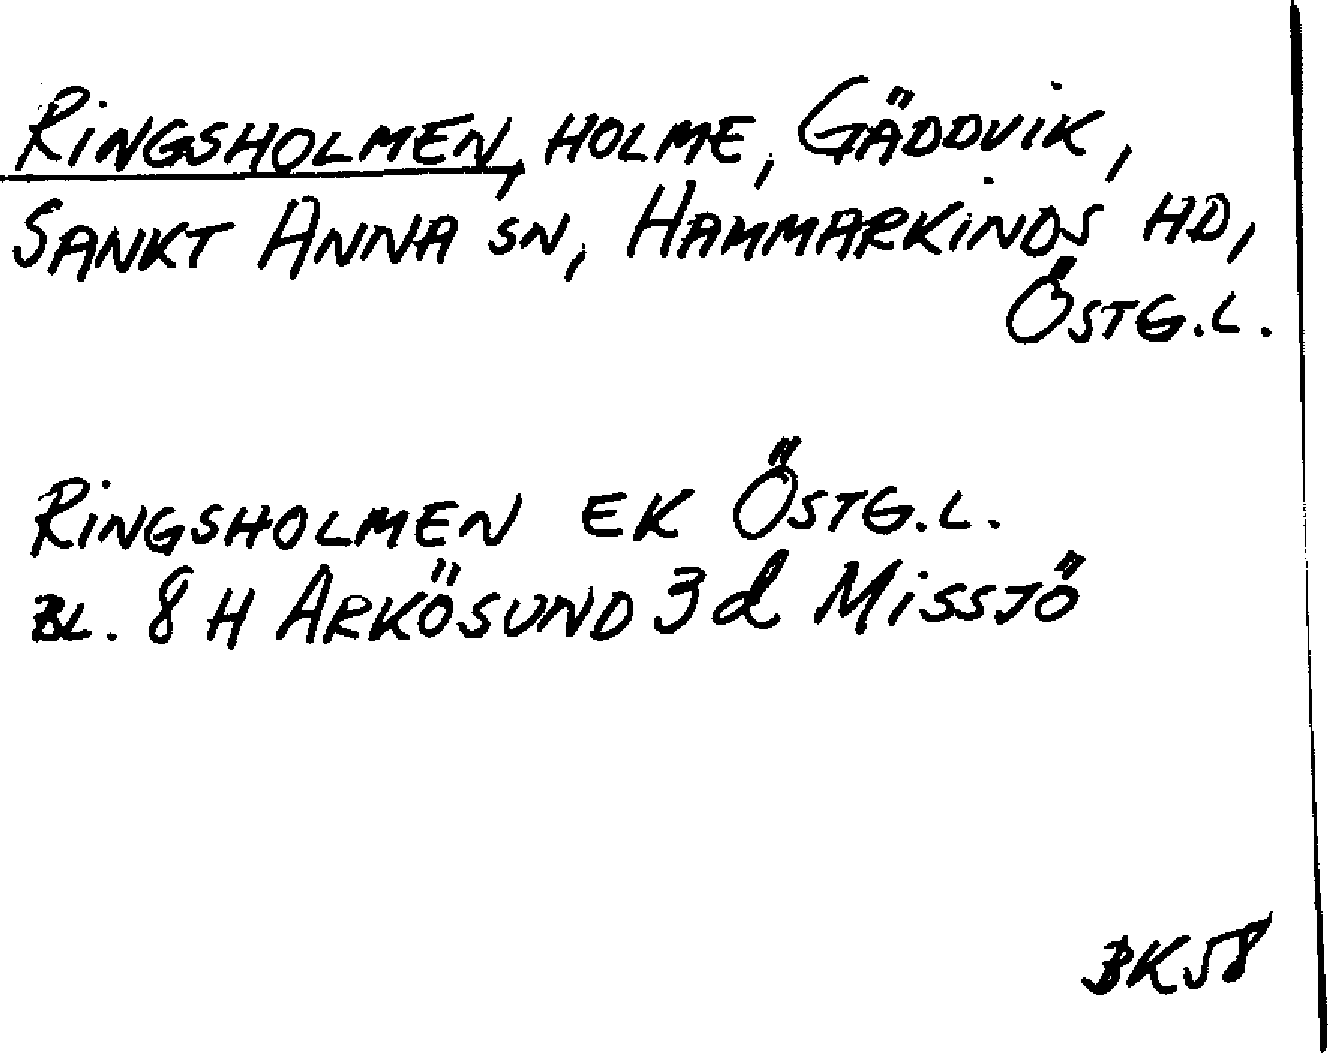 RINGSHOLMEN, HOLME, GÄDDVIK,
SANKT ANNA SN, HAMMARKINDS HD,
ÖSTG.L.
RINGSHOLMEN EK ÖSTG.L.
BL. 8 H ARKÖSUND 3 d MISSJÖ
BK58